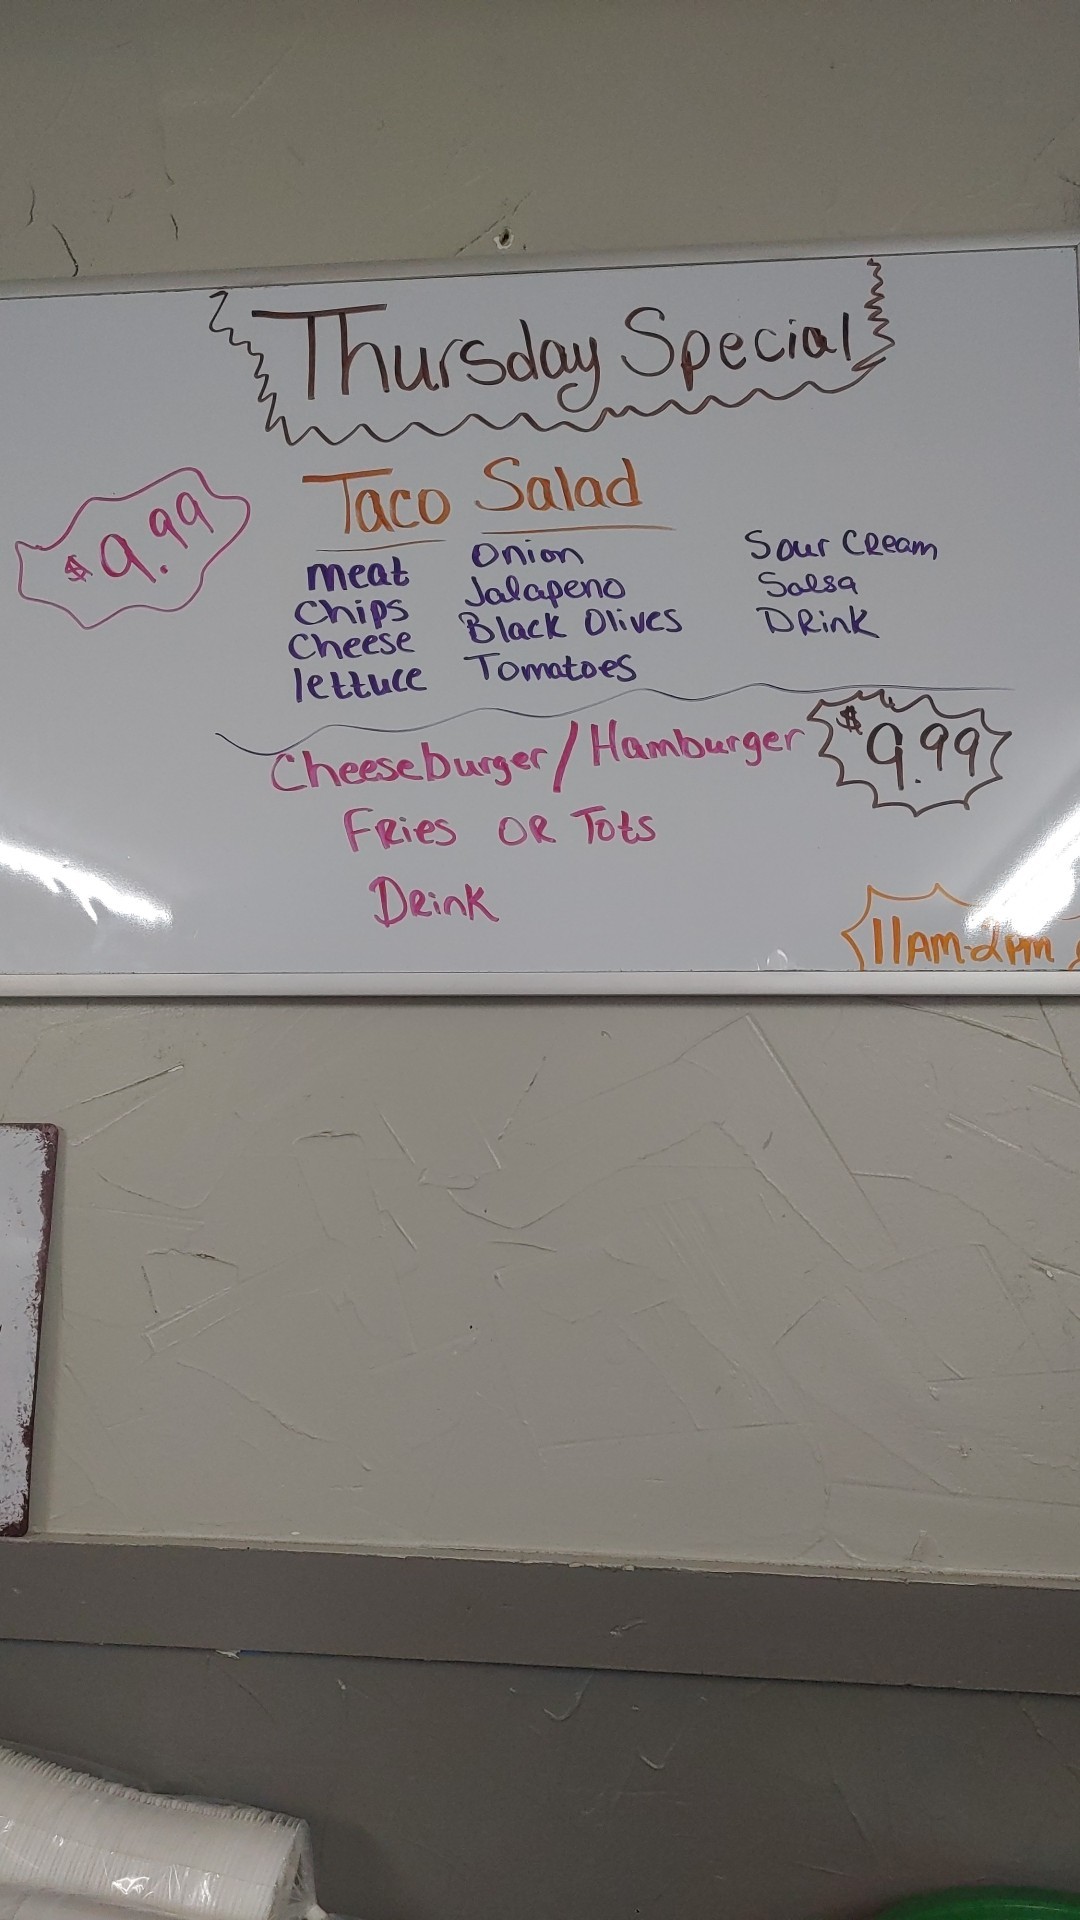 Thursday Special
Taco Salad
$9.99
meat
Chips
Cheese
lettuce
Onion
Jalapeno
Black Olives
Tomatoes
Sour Cream
Salsa
Drink
Cheeseburger/Hamburger
$9.99
Fries or Tots
Drink
11AM-2PM